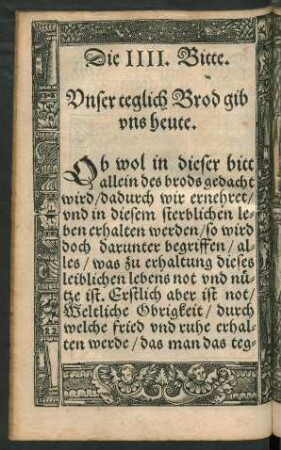 Die IIII. Bitte.
Vnser teglich Brod gib
vns heute.
Ob wol in dieser bitt
allein des brods gedacht
wird/dadurch wir ernehret/
vnd in diesem sterblichen le-
ben erhalten werden/so wird
doch darunter begriffen/al-
les/was zu erhaltung dieses
leiblichen lebens not vnd nü-
tze ist. Erstlich aber ist not/
Weltliche Obrigkeit/durch
welche fried vnd ruhe erhal-
ten werde/das man das teg-